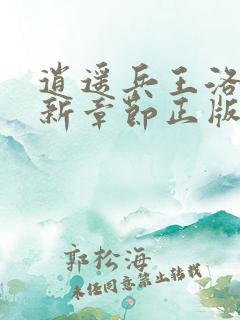 逍遥兵王洛
新章节正版
郭松海
未经同意禁止转载